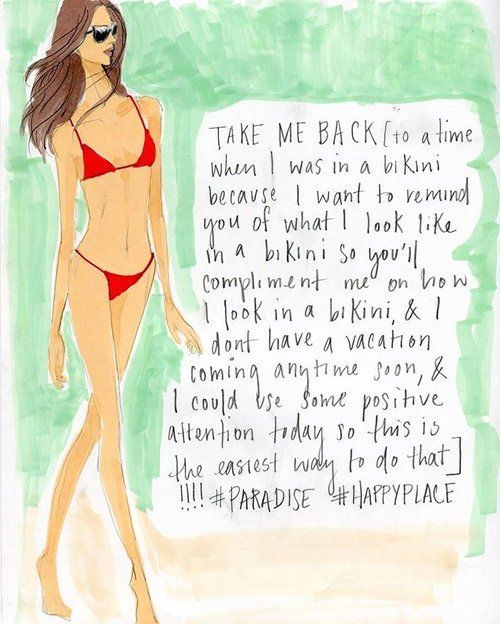 TAKE ME BACK [to a time
when I was in a bikini
because I want to remind
you of what I look like
in a bikini so you'll
compliment me on how
I look in a bikini, & I
dont have a vacation
coming anytime soon, &
I could use some positive
attention today so this is
the easiest way to do that]
!!!! #PARADISE #HAPPYPLACE